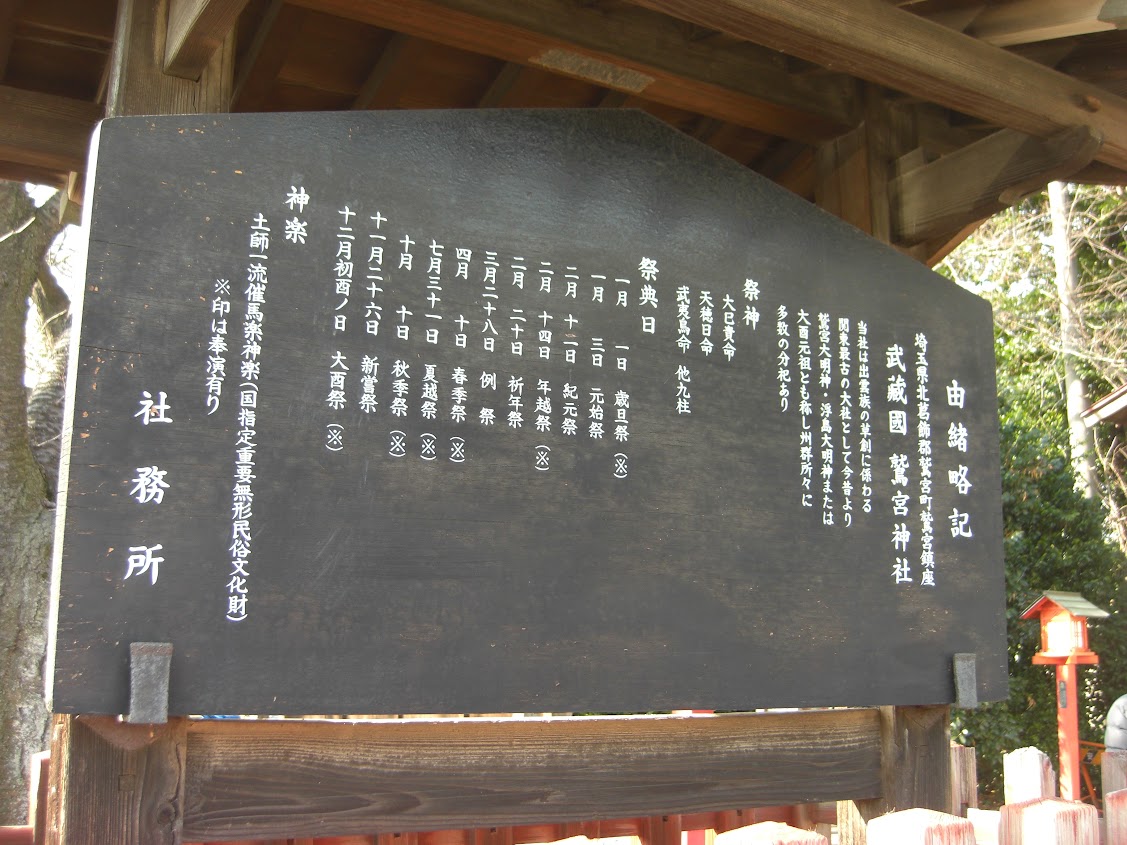 由緒略記
埼玉県北葛飾郡鷲宮町鷲宮鎮座
武蔵國 鷲宮神社
当社は出雲族の草創に係わる
関東最古の大社として今昔より
鷲宮大明神・浮島大明神または
大酉元祖とも称し州群所々に
多数の分祀あり
祭神
大己貴命
天穂日命
武夷鳥命 他九柱
祭典日
一月 一日 歳旦祭 (※)
一月 三日 元始祭
二月 十二日 紀元祭
二月 十四日 年越祭 (※)
二月 二十日 祈年祭
三月二十八日 例 祭
四月 十日 春季祭 (※)
七月三十一日 夏越祭 (※)
十月 十日 秋季祭 (※)
十一月二十六日 新嘗祭
十二月初酉ノ日 大酉祭 (※)
神楽
土師一流催馬楽神楽(国指定重要無形民俗文化財)
※印は奉演有り
社務所